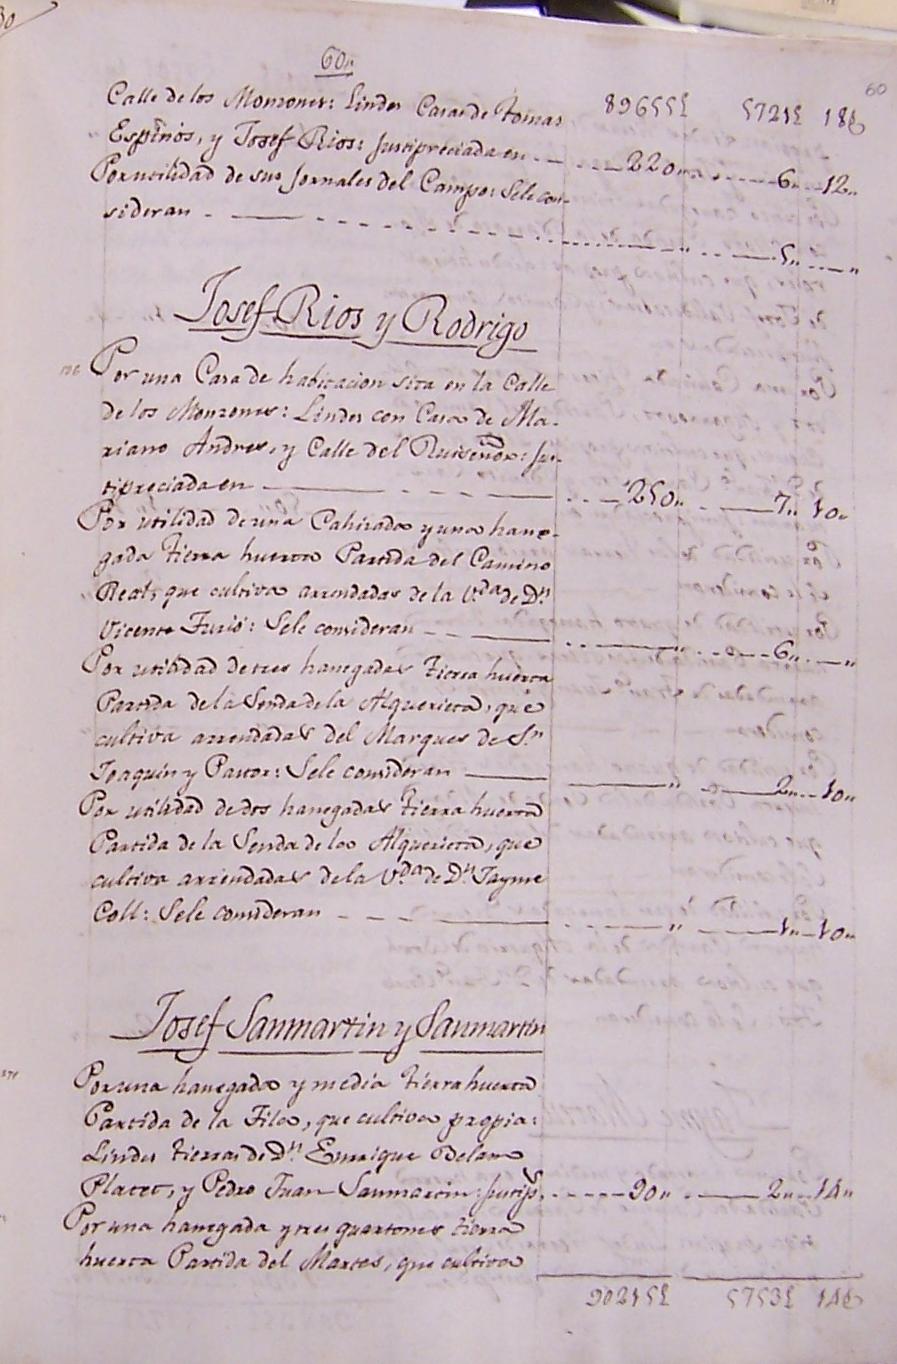 60,,
60
Calle de los Monzones: Lindes Casas de Tomas 89655£ 5721£ 18s
Espinós, y Josef Rios: justipreciada en - - - 220,, - - - 6,, 12,,
Por utilidad de sus Jornales del Campo: Sele con-
sideran - - - - ,, - - - 5,, - - ,,
Josef Rios y Rodrigo
Por una Casa de habitacion sita en la Calle
de los Monzones: Lindes con Casa de Ma-
riano Andres, y Calle del Ruiseñor: jus-
tipreciada en - - - 250,, - - 7,, 10,,
Por utilidad de una Cahizada y una hane-
gada tierra huerta Partida del Camino
Real, que cultiva arrendadas de la V.da de D.n
Vicente Furió: Sele consideran - - - ,, - - - 6,, - - ,,
Por utilidad de tres hanegadas tierra huerta
Partida de la Senda de la Alquerieta, que
cultiva arrendadas del Marques de S.n
Joaquin y Pastor: Sele consideran - - - ,, - - - 2,, 10,,
Por utilidad de dos hanegadas tierra huerta
Partida de la Senda de la Alquerieta, que
cultiva arrendadas de la V.da de D.n Jayme
Coll: Sele consideran - - - ,, - - - 1,, 10,,
Josef Sanmartin y Sanmartin
Por una hanegada y media tierra huerta
Partida de la Fila, que cultiva propia:
Lindes tierras de D.n Enrique
Platet, y Pedro Juan Sanmartin: justip. - - - 90,, - - - 2,, 14,,
Por una hanegada y tres quartones tierra
huerta Partida del Martes, que cultiva
90215£ 5753£ 14s